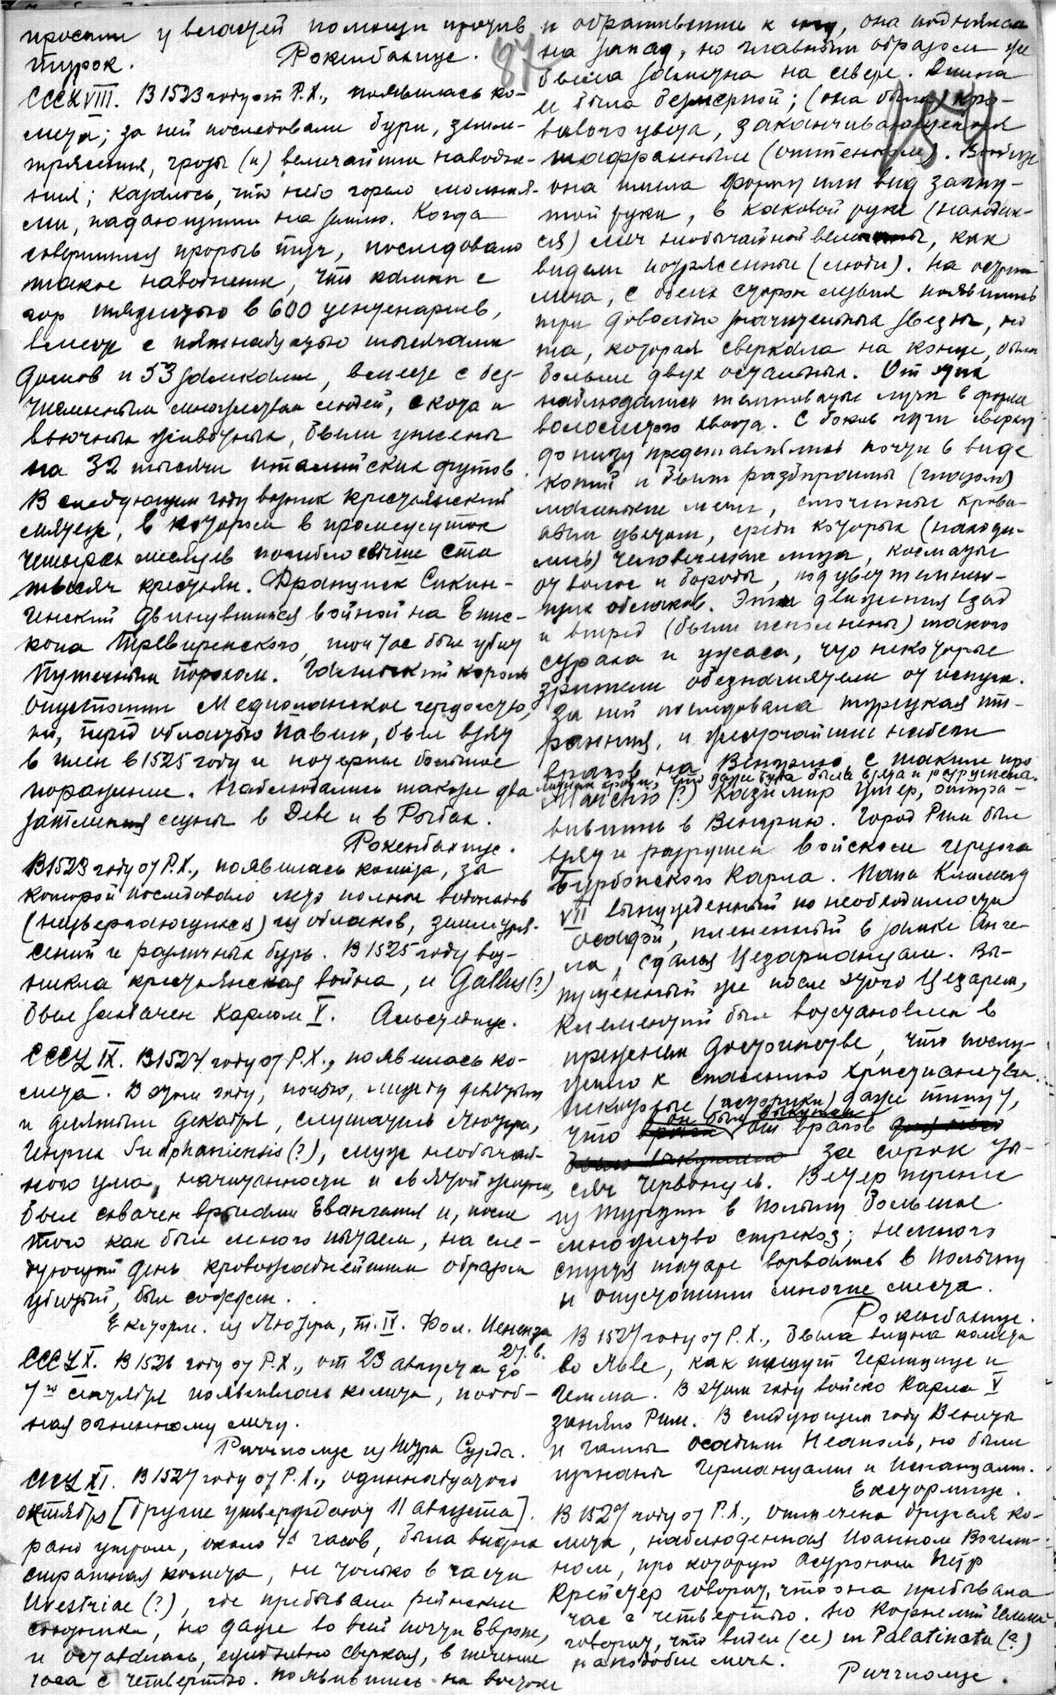 просили у властей помощи против
турок. Рокенбахиус.
CCCXVIII. В 1523 году от Р.Х., появилась ко-
мета; за ней последовали бури, земле-
трясения, грозы (и) величайшие наводне-
ния; казалось, что небо горело молния-
ми, падающими на землю. Когда
совершился прорыв туч, последовало
такое наводнение, что камни с
гор тяжестью в 600 центенариев,
вместе с пятнадцатью тысячами
домов и 53 замками, вместе с бес-
численным множеством людей, скота и
вьючных животных, были унесены
на 32 тысячи италийских футов.
В следующем году возник крестьянский
мятеж, в котором в промежуток
четырех месяцев погибло свыше ста
тысяч крестьян. Франциск Сикин-
генский двинувшийся войной на Епис-
копа Тревиренского, тотчас был убит
пушечным порохом. Галльский король
опустошил Медиоланское герцогство,
но, перед областью Павии, был взят
в плен в 1525 году и потерпел большое
поражение. Наблюдались также два
затмения луны в Деве и в Рыбах.
Рокенбахиус.
В 1523 году от Р.Х., появилась комета, за
которой последовало лето полное водопадов
(низвергающихся) из облаков, землетря-
сений и различных бурь. В 1525 году воз-
никла крестьянская война, и Gallus (?)
был захвачен Карлом V. Альстедиус.
CCCXIX. В 1524 году от Р.Х., появилась ко-
мета. В этом году, ночью, между девятым
и десятым декабря, слушатель Лютера,
Генрих Sudphaniensis (?), муж необычай-
ного ума, начитанности и святой жизни,
был схвачен врагами Евангелия и, после
того как был много пытаем, на сле-
дующий день кровожаднейшим образом
убитый, был сожжен.
Експорм. из Лютера, т. IV. Фол. Иененза
27. в.
CCCXX. В 1526 году от Р.Х., от 23 августа до
7го сентября появлялась комета, подоб-
ная огненному мечу.
Риччиолус из Петра Сурда.
CCCXXI. В 1527 году от Р.Х., одиннадцатого
октября [другие утверждают 11 августа].
рано утром, около 4х часов, была видна
страшная комета, не только в части
Westriae (?), где пребывали рейнские
союзники, но даже во всей почти Европе,
и оставалась, ежедневно сверкая, в течение
часа с четвертью. Появившись на востоке
и обратившись к югу, она поднялась
на запад, но главным образом же
была заметна на севере. Длина
ее была безмерной; (она была) кро-
вавого цвета, заканчивающегося
шафранным (оттенком). Вообще
она имела форму или вид загну-
той руки, в каковой руке (находил-
ся) меч необычайной величины, как
видели потрясенные (люди). На острие
меча, с обеих сторон лезвия появились
три довольно значительных звезды, но
та, которая сверкала на конце, была
больше двух остальных. От них
наблюдались темноватые лучи в форме
волосистого хвоста. С боков лучи сверху
донизу представлялись почти в виде
копий и были разбросаны (глазами)
маленькие мечи, смоченные крова-
вым цветом, среди которых (находи-
лись) человеческие лица, косматые
от волос и бороды, под цвет темнею-
щих облаков. Эти движения взад
и вперед (были исполнены) такого
страха и ужаса, что некоторые
зрители обезжизнели от испуга.
За ней последовала турецкая ти-
рания, и жесточайшие набеги
врагов на Венгрию, с таким про-
литием крови, что даже Буда была взята и разрушена.
Marchio (?) Казимир умер, отпра-
вившись в Венгрию. Город Рим был
взят и разрушен войском герцога
Бурбонского Карла. Папа Климент
VII вынужденный по необходимости
осадой, плененный в замке Анге-
ла, сдался Цезарианцам. Вы-
пущенный уже после этого Цезарем,
Климентий был восстановлен в
прежнем достоинстве, что послу-
жило к спасению христианства.
Некоторые (историки) даже пишут,
что он был выкуплен от врагов
за сорок ты-
сяч червонцев. Ветер принес
из Турции в Польшу большое
множество стрекоз; немного
спустя татаре ворвались в Польшу
и опустошили многие места.
Рокенбахиус.
В 1527 году от Р.Х., была видна комета
во Льве, как пишут Герлициус и
Гемма. В этом году войско Карла V
заняло Рим. В следующем году Венеты
и галлы осадили Неаполь, но были
изгнаны Германцами и Испанцами.
Експормиус.
В 1527 году от Р.Х., отмечена другая ко-
мета, наблюденная Иоанном Вогели-
ном, про которую Астроном Петр
Крейтцер говорит, что она пребывала
час с четвертью. Но Корнелий Гемма
говорит, что видел (ее) in Palatinatu (?)
наподобие меча.
Риччиолус.